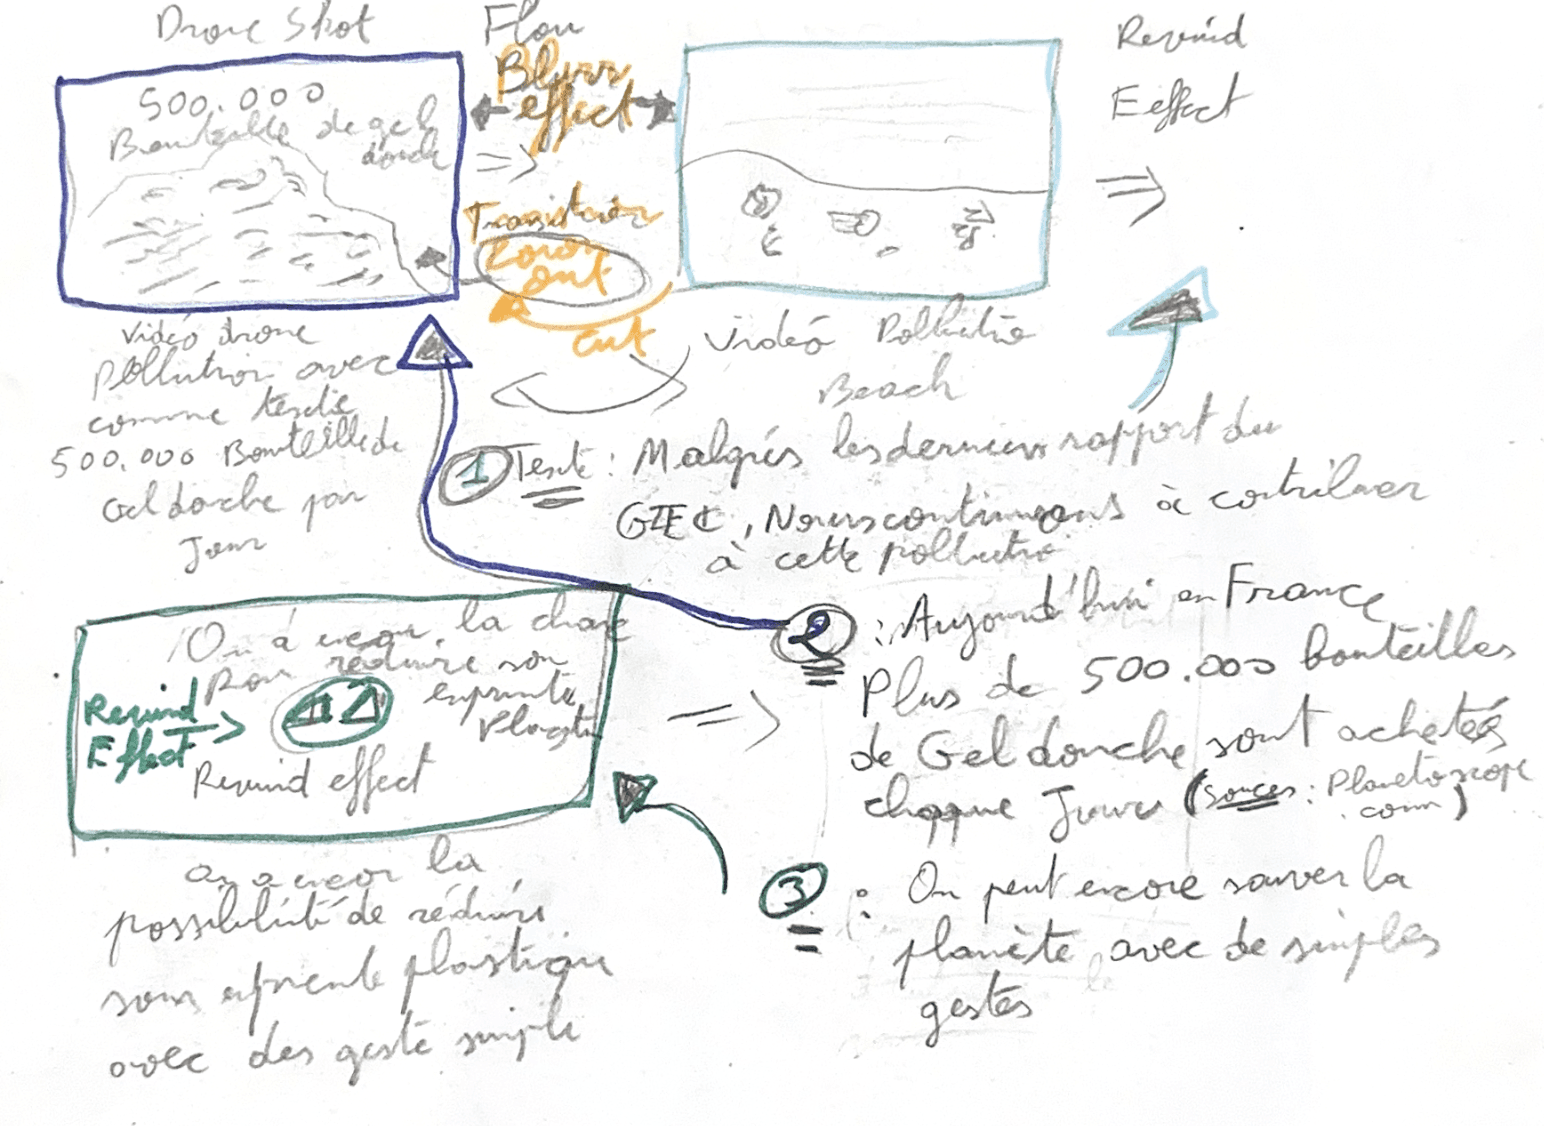 Drone Shot
Flou
Blurr
effect
Rewind
Eeffect
500.000
Bouteille de gel
douche
Transition
Zoom
out
cut
Vidéo drone
pollution avec
comme
500.000 Bouteille de
Gel douche par
Jour
Vidéo Pollutio
Beach
1 Texte : Malgrés les derniers rapport du
GIEC, Nous continuons à contribuer
à cette pollutio
2 : Aujourd'hui en France
Plus de 500.000 bouteilles
de Gel douche sont achetés
chaque Jours (Sources : Planetoscope
.com)
On a encor la
pour réduire son
emprunte
Plasti
Rewind
Effect
Rewind effect
on a encor la
possibilité de réduire
sons plastique
avec des geste simple
3 : On peut encore sauver la
planète avec de simples
gestes